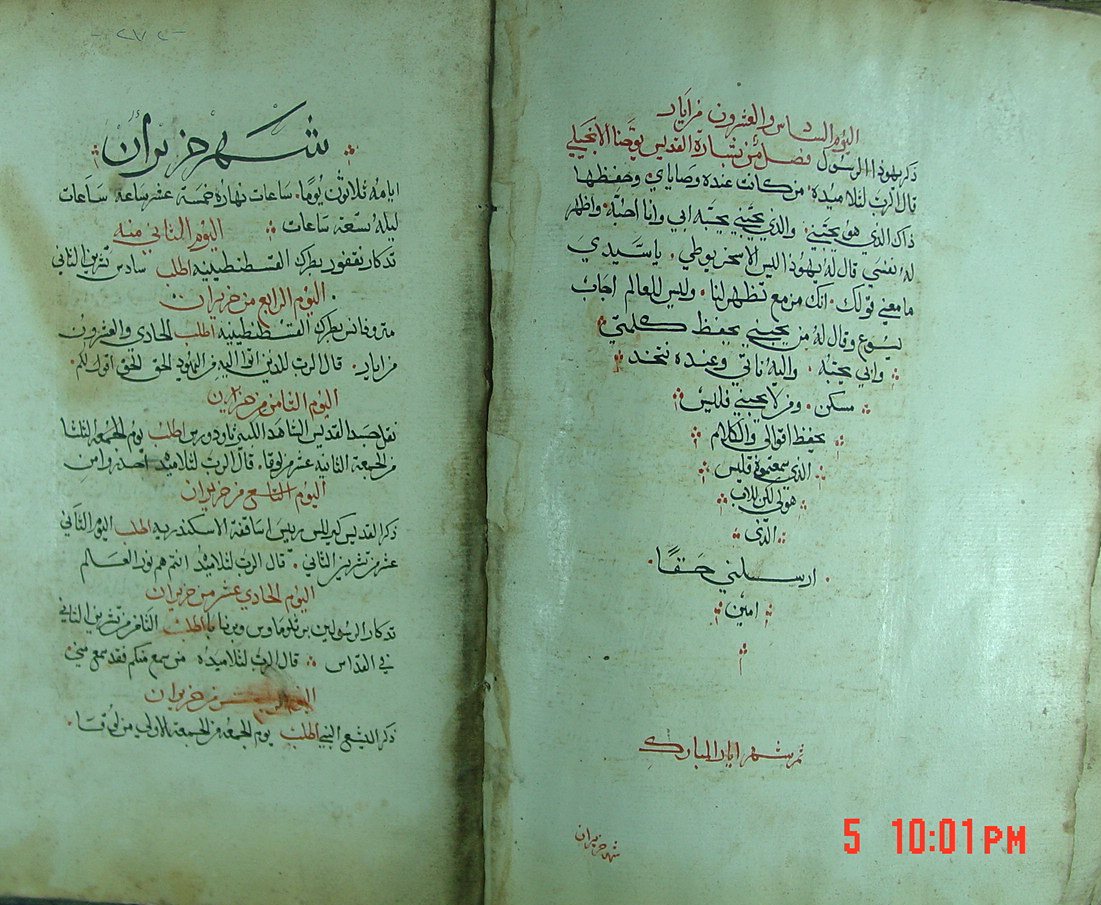 اليوم السادس والعشرون من ايار
ذكر يهوذا الرسول فصل من بشارة القديس يوحنا الانجيلي
قال الرب لتلاميذه من كانت عنده وصاياي وحفظها
ذاك الذي هو يحبني والذي يحبني يحبه ابي وانا احبه واظهر
له نفسي قال له يهوذا ليس الاسخريوطي يا سيدي
ما معني قولك انك مزمع تظهر لنا وليس للعالم اجاب
يسوع وقال له من يحبني يحفظ كلمتي
وابي يحبه واليه ناتي وعنده نتخذ
مسكن ومن لا يحبني فليس
يحفظ اقوالي والكلام
الذي سمعتموه فليس
هو لي لكن للاب
الذي
ارسلني حقًا
امين
تم شهر ايار المبارك
شهر حزيران
5 10:01PM
٢٧٢
شهر حزيران
ايامه ثلاثون يومًا ساعات نهاره خمسة عشر ساعه ساعات
ليله تسعة ساعات اليوم الثاني منه
تدكار نقفور بطرك القسطنطينيه اطلب سادس تشرين الثاني
اليوم الرابع من حزيران
متروفانس بطرك القسطنطينيه اطلب الحادي والعشرون
من ايار قال الرب للدين اليه من اليهود الحق الحق اقول لكم
اليوم الثامن من حزيران
نقل جسد القديس الشاهد تاودورس اطلب يوم الجمعه
من الجمعة الثانيه عشر من لوقا قال الرب لتلاميذه
اليوم التاسع من حزيران
ذكر القديس كيرللس رييس اساقفة الاسكندريه اطلب اليوم الثاني
عشر من تشرين الثاني قال الرب لتلاميذه انتم هم نور العالم
اليوم الحادي عشر من حزيران
تدكار الرسولين برتلوماوس وبرنابا اطلب الثامن من تشرين الثاني
في القداس قال الرب لتلاميذه من سمع منكم فقد سمع مني
اليوم الرابع عشر من حزيران
ذكر اليشع النبي اطلب يوم الجمعه من الجمعة الاولي من لوقا